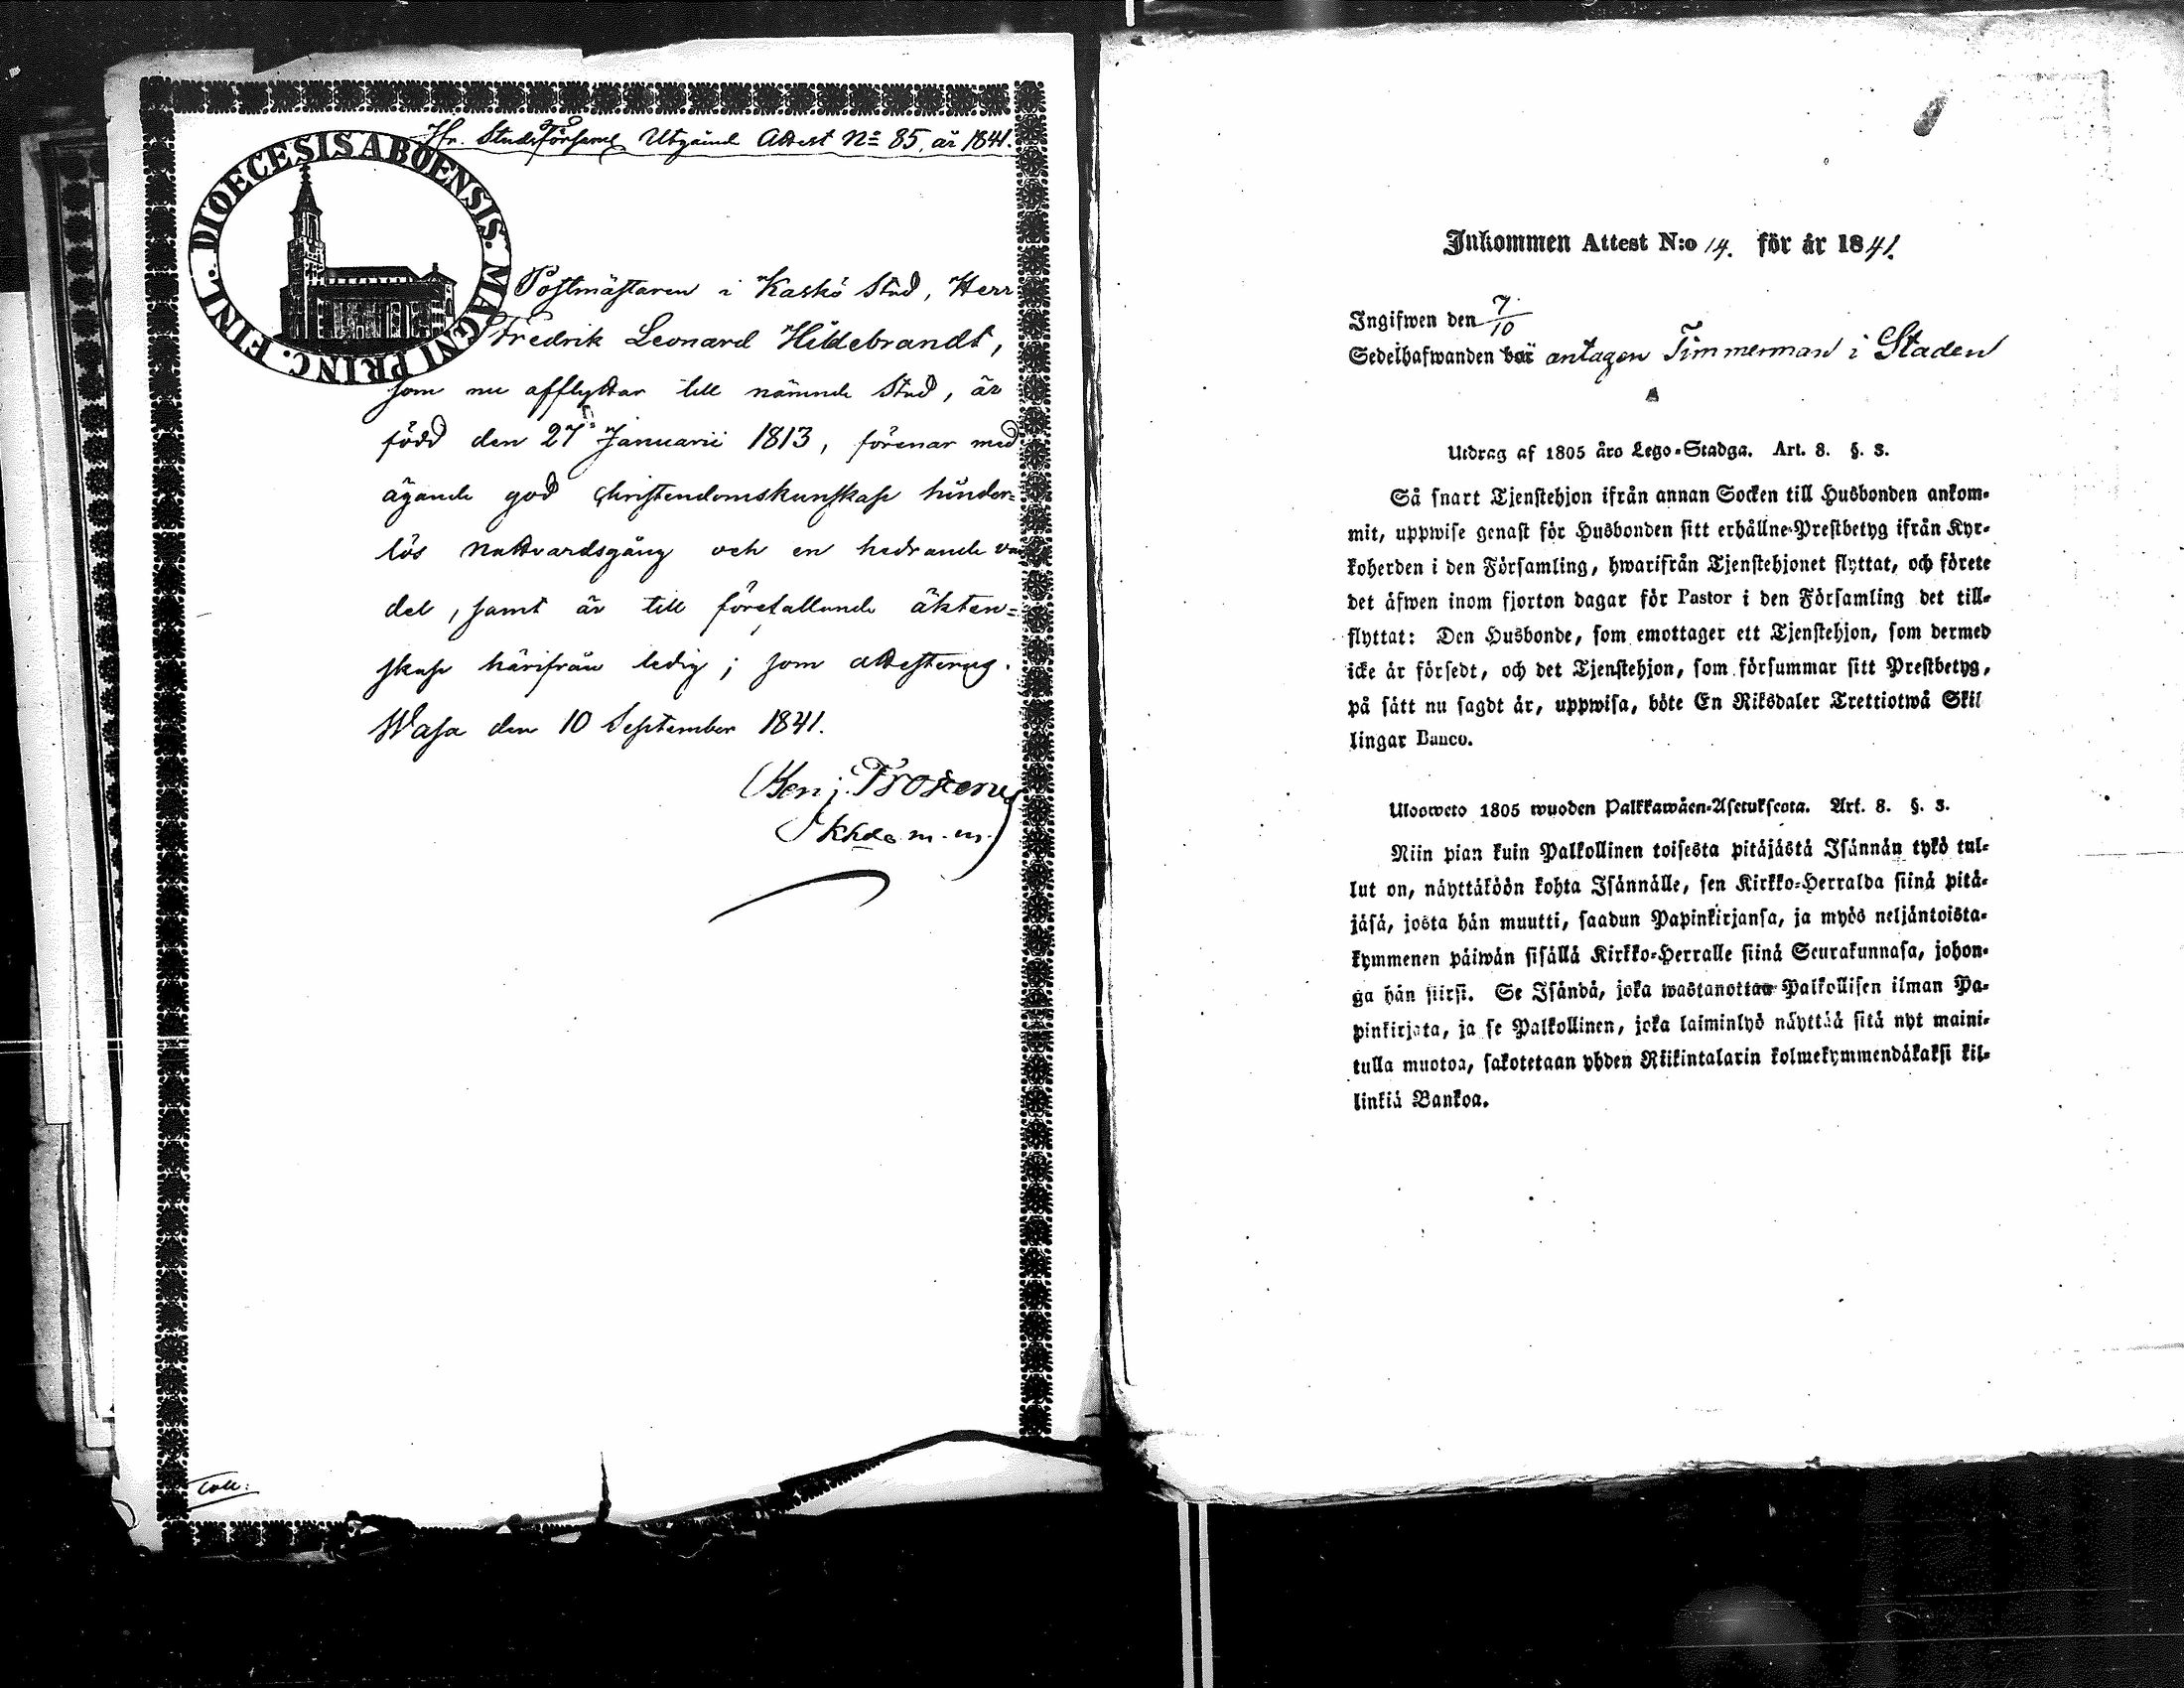 Fr. Stadsförsaml. Utgående Attest No 85, år 1841.
DIOECESIS ABOENSIS. MAGNI PRINC. FINL.
Postmästaren i Kaskö stad, Herr
Fredrik Leonard Hildebrandt,
som nu afflyttar till nämnde stad, är
född den 27 Januarii 1813, förenar med
ägande god christendomskunskap hinder=
lös nattvardsgång och en hedrande van
del, samt är till förefallande äkten=
skap härifrån ledig; som attesteras.
Wasa den 10 September 1841.
Benj. Frosterus
Kkde m. m.
Coll:
Inkommen Attest N:o 14. för år 1841.
Ingifwen den 7/10
Sedelhafwanden bör antagen Timmerman i Staden
Utdrag af 1805 års Lego-Stadga. Art. 8. §. 3.
Så snart Tjenstehjon ifrån annan Socken till Husbonden ankom-
mit, uppwise genast för Husbonden sitt erhållne Prestbetyg ifrån Kyr-
koherden i den Församling, hwarifrån Tjenstehjonet flyttat, och förete
det äfwen inom fjorton dagar för Pastor i den Församling det till-
flyttat: Den Husbonde, som emottager ett Tjenstehjon, som dermed
icke är försedt, och det Tjenstehjon, som försummar sitt Prestbetyg,
på sätt nu sagdt är, uppwisa, böte En Riksdaler Trettiotwå Skil
lingar Banco.
Ulosweto 1805 wuoden Palkkawäen-Asetuksesta. Art. 8. §. 3.
Niin pian kuin Palkollinen toisesta pitäjästä Isännän tykö tul-
lut on, näyttäköön kohta Isännälle, sen Kirkko-Herralda siinä pitä-
jäsä, josta hän muutti, saadun Papinkirjansa, ja myös neljäntoista-
kymmenen päiwän sisällä Kirkko-Herralle siinä Seurakunnasa, johon-
ga hän siirsi. Se Isändä, joka wastanottaa Palkollisen ilman Pa-
pinkirjata, ja se Palkollinen, joka laiminlyö näyttää sitä nyt maini-
tulla muotoa, sakotetaan yhden Riikintalarin kolmekymmendäkaksi kil-
linkiä Bankoa.